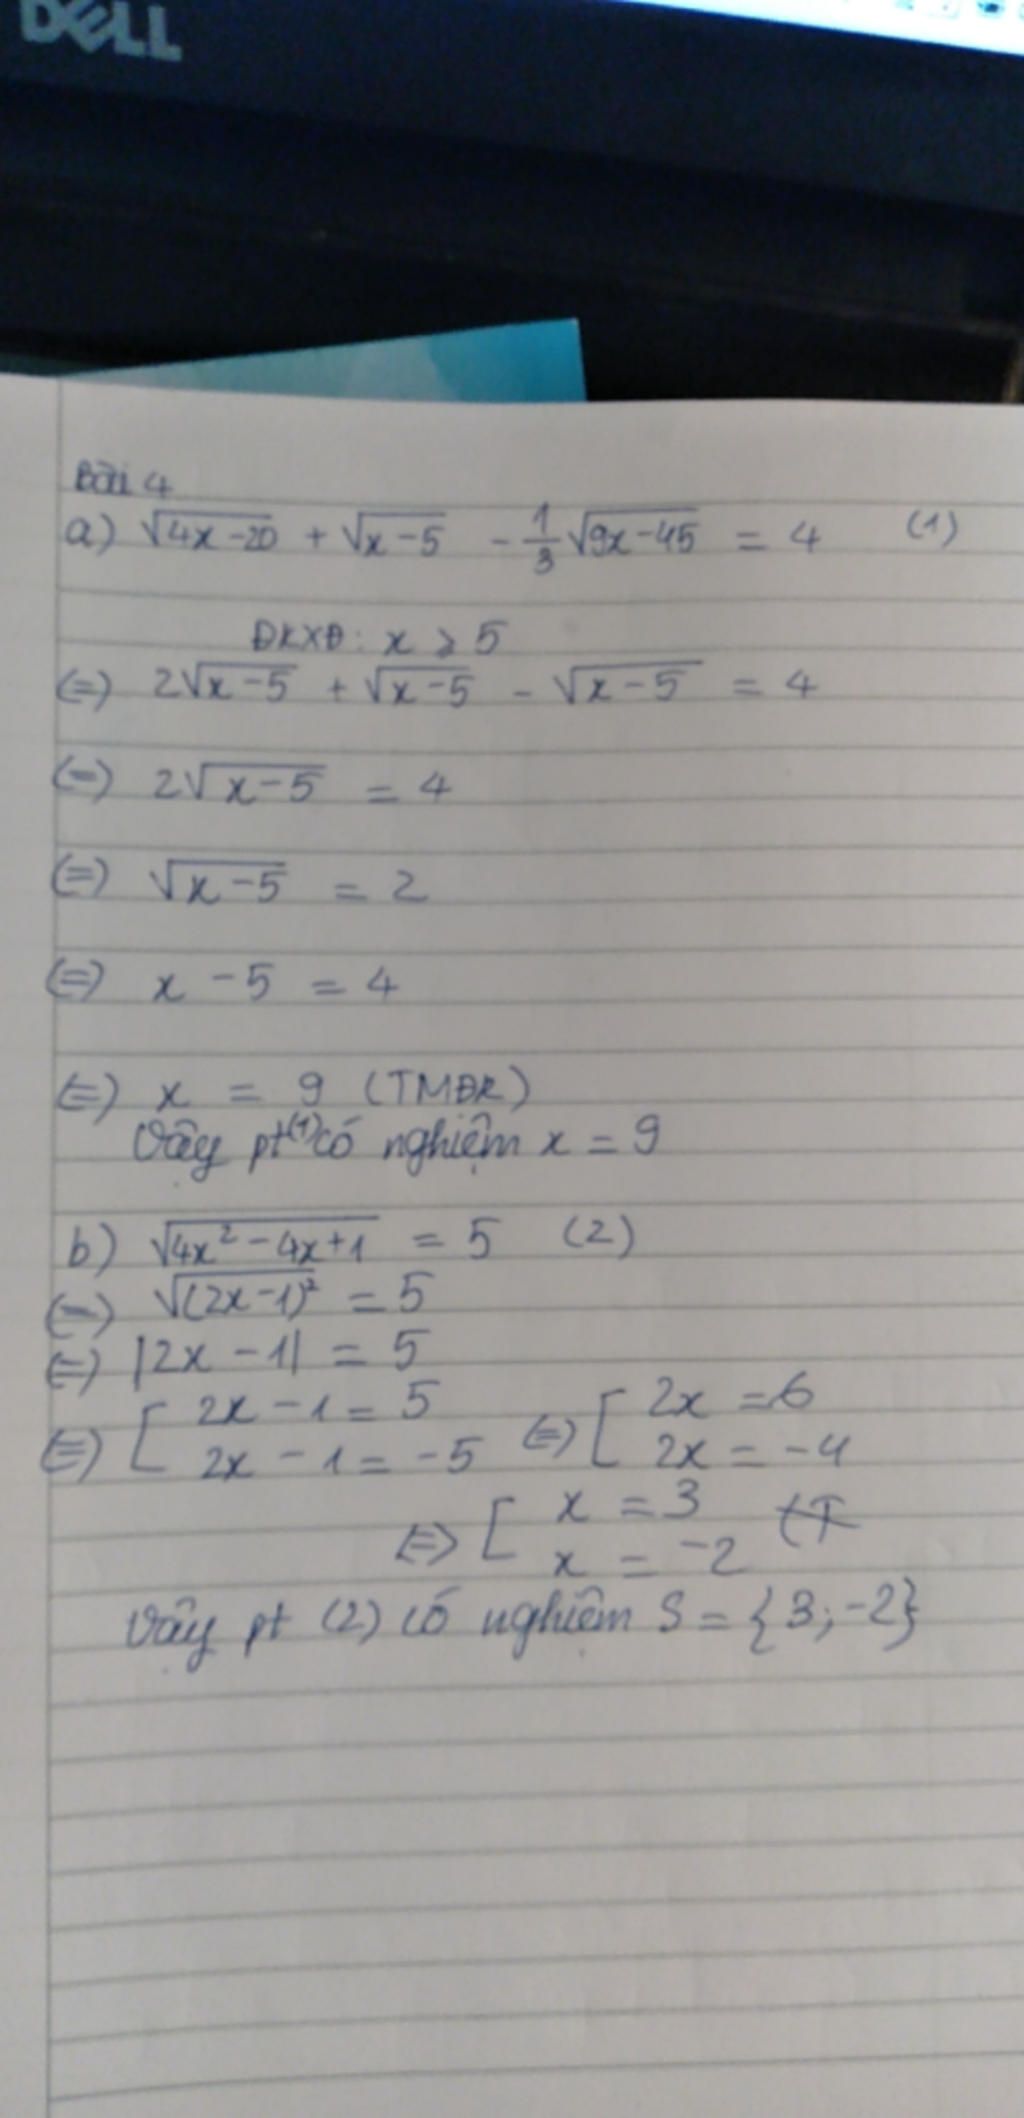 DELL
Bài 4
a) √(4x-20) + √(x-5) - 1/3 √(9x-45) = 4 (1)
ĐKXĐ: x ⩾ 5
(=) 2√(x-5) + √(x-5) - √(x-5) = 4
(=) 2√(x-5) = 4
(=) √(x-5) = 2
(=) x - 5 = 4
(=) x = 9 (TMĐK)
Vậy pt (1) có nghiệm x = 9
b) √(4x² - 4x + 1) = 5 (2)
(=) √((2x-1)²) = 5
(=) |2x - 1| = 5
(=) [ 2x - 1 = 5 (=) [ 2x = 6
2x - 1 = -5 2x = -4
(=) [ x = 3 (T
x = -2
Vậy pt (2) có nghiệm S = {3; -2}